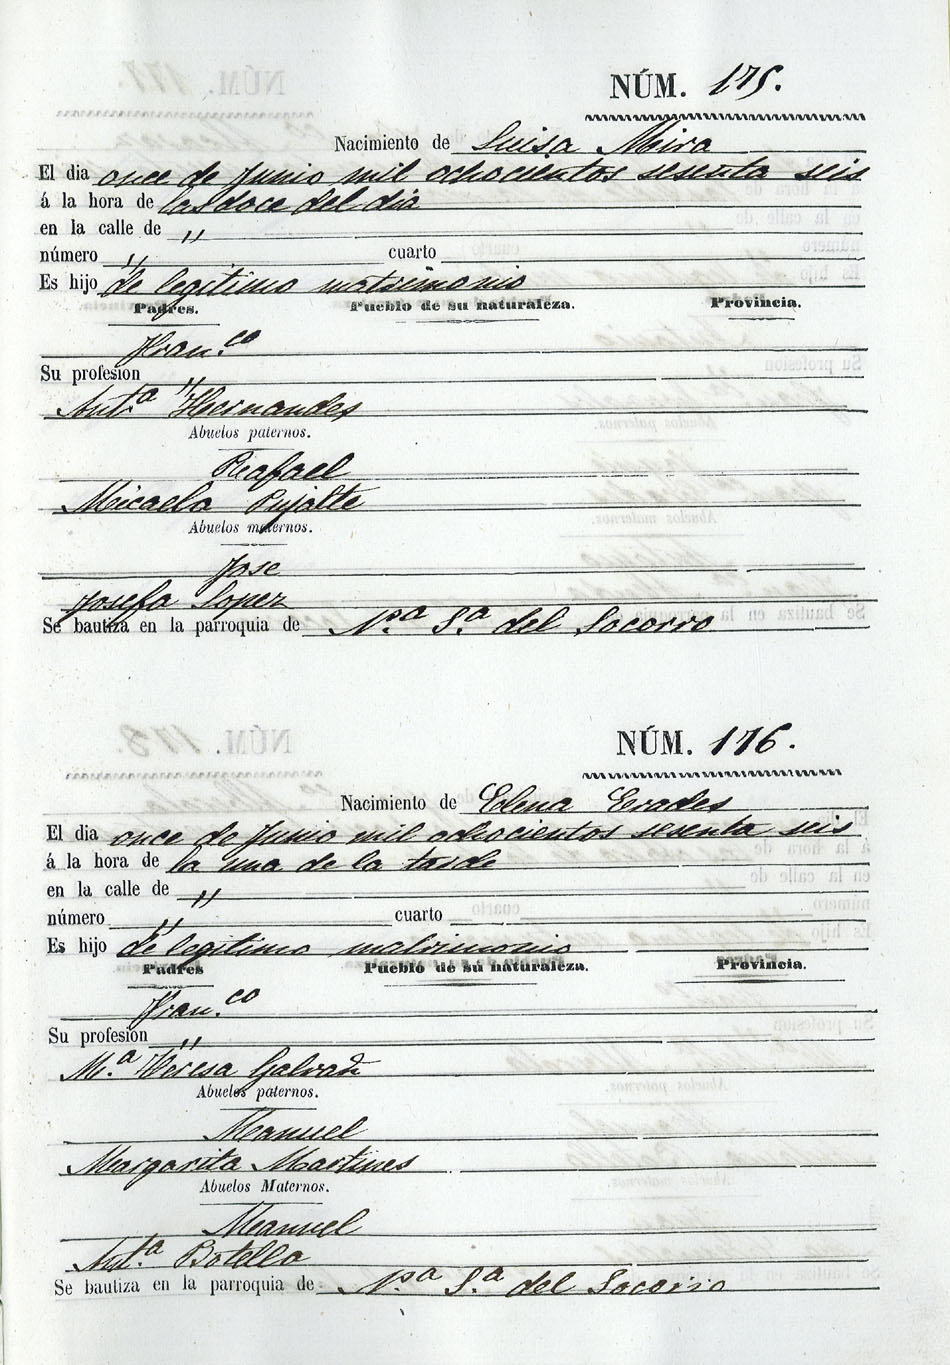 NÚM. 175.
Nacimiento de Luisa Mira
El dia once de Junio mil ochocientos sesenta seis
á la hora de las doce del dia
en la calle de "
número " cuarto
Es hijo de legitimo matrimonio
Padres. Pueblo de su naturaleza. Provincia.
Fran.co
Su profesion "
Ant.a Hernandes
Abuelos paternos.
Rafael
Micaela Pujalte
Abuelos maternos.
Jose
Josefa Lopez
Se bautiza en la parroquia de N.a S.a del Socorro
NÚM. 176.
Nacimiento de Elena Erades
El dia once de Junio mil ochocientos sesenta seis
á la hora de la una de la tarde
en la calle de "
número " cuarto
Es hijo de legitimo matrimonio
Padres Pueblo de su naturaleza. Provincia.
Fran.co
Su profesion "
M.a Teresa Galvañ
Abuelos paternos.
Manuel
Margarita Martines
Abuelos Maternos.
Manuel
Ant.a Botella
Se bautiza en la parroquia de N.a S.a del Socorro